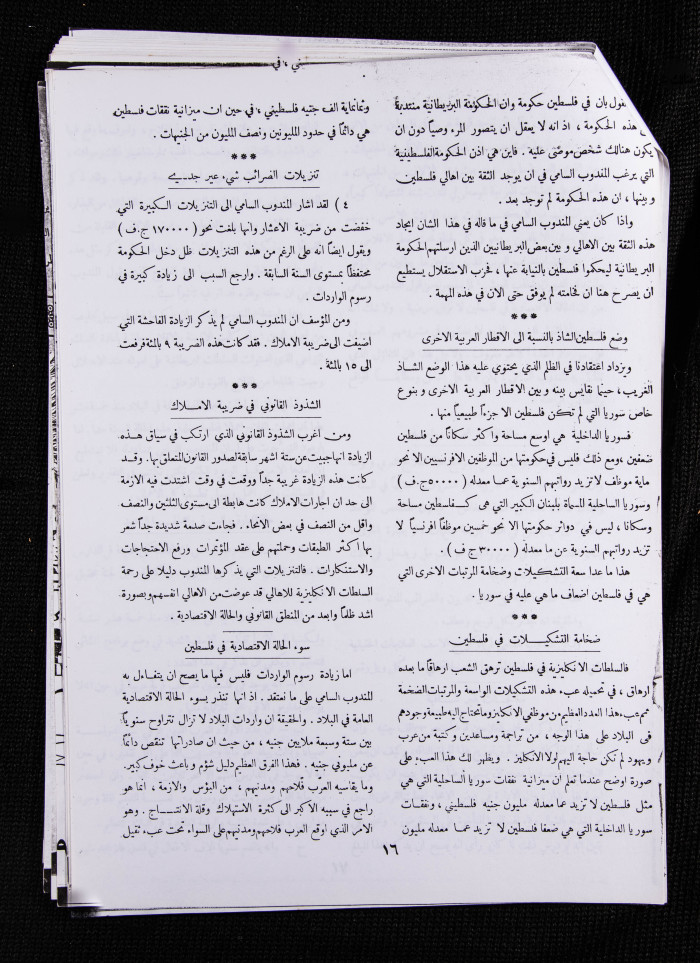 ني ، في
قول بان في فلسطين حكومة وان الحكومة البريطانية منتدبة
هذه الحكومة ، اذ انه لا يعقل ان يتصور المرء وصياً دون ان
يكون هنالك شخص موصّى عليه . فاين هي اذن الحكومة الفلسطينية
التي يرغب المندوب السامي في ان يوجد الثقة بين اهالي فلسطين
وبينها ، ان هذه الحكومة لم توجد بعد .
واذا كان يعني المندوب السامي في ما قاله في هذا الشان ايجاد
هذه الثقة بين الاهالي وبين بعض البريطانيين الذين ارسلتهم الحكومة
البريطانية ليحكموا فلسطين بالنيابة عنها ، فحزب الاستقلال يستطيع
ان يصرح هنا ان فخامته لم يوفق حتى الان في هذه المهمة .
***
وضع فلسطين الشاذ بالنسبة الى الاقطار العربية الاخرى
ونزداد اعتقادنا في الظلم الذي يحتوي عليه هذا الوضع الشاذ
الغريب ، حينما نقايس بينه وبين الاقطار العربية الاخرى وبنوع
خاص سوريا التي لم تكن فلسطين الا جزءاً طبيعياً منها .
فسوريا الداخلية هي اوسع مساحة واكثر سكاناً من فلسطين
ضعفين ، ومع ذلك فليس في حكومتها من الموظفين الافرنسيين الا نحو
ماية موظف لا تزيد رواتبهم السنوية عما معدله ( ٥٠٠٠٠ ج.ف )
وسوريا الساحلية المسماة بلبنان الكبير التي هي كـفلسطين مساحة
وسكانا ، ليس في دوائر حكومتها الا نحو خمسين موظفاً افرنسياً لا
تزيد رواتبهم السنوية عن ما معدله ( ٣٠٠٠٠ ج ف ) .
هذا ما عدا سعة التشكيلات وضخامة المرتبات الاخرى التي
هي في فلسطين اضعاف ما هي عليه في سوريا .
***
ضخامة التشكيـلات في فلسطين
فالسلطات الانكليزية في فلسطين ترهق الشعب ارهاقاً ما بعده
ارهاق ، في تحميله عبء هذه التشكيلات الواسعة والمرتبات الضخمة
عبء هذا العدد العظيم من موظفي الانكليز وما تحتاج اليه طبيعة وجودهم
فى البلاد على هذا الوجه ، من تراجمة ومساعدين وكتبة من عرب
ويهود لم تكن حاجة اليهم لولا الانكليز . ويظهر لك هذا العبء على
صورة اوضح عندما تعلم ان ميزانية نفقات سوريا الساحلية التي هي
مثل فلسطين لا تزيد عما معدله مليون جنيه فلسطيني ، ونفقـات
سوريا الداخلية التي هي ضعفا فلسطين لا تزيد عمـا معدله مليون
وثمانماية الف جنيه فلسطيني ، في حين ان ميزانية نفقات فلسطين
هي دائماً في حدود المليونين ونصف المليون من الجنيهات .
***
تنزيلات الضرائب شيء غير جديـ
٤ ) لقد اشار المندوب السامى الى التنزيلات الكبيرة التي
خفضت من ضريبة الاعشار وانها بلغت نحو ( ١٧٠٠٠٠ ج.ف )
ويقول ايضاً انه على الرغم من هذه التنزيلات ظل دخل الحكومة
محتفظاً بمستوى السنة السابقة . وارجع السبب الى زيادة كبيرة في
رسوم الواردات .
ومن المؤسف ان المندوب السامي لم يذكر الزيادة الفاحشة التي
اضيفت الى ضريبة الاملاك . فقد كانت هذه الضريبة ٩ بالمئة فرفعت
الى ١٥ بالمئة .
***
الشذوذ القانوني في ضريبة الامـلاك
ومن اغرب الشذوذ القانوني الذي ارتكب في سياق هـذه
الزيادة انها جبيت عن ستة اشهر سابقة لصدور القانون المتعلق بها . وقـد
كانت هذه الزيادة غريبة جداً ووقعت في وقت اشتدت فيه الازمة
الى حد ان اجارات الاملاك كانت هابطة الى مستوى الثلثين والنصف
واقل من النصف في بعض الانحاء . فجاءت صدمة شديدة جداً شعر
بها اكـثر الطبقات وحملتهم على عقد المؤتمرات ورفع الاحتجاجات
والاستنكارات . فالتنزيلات التي يذكرها المندوب دليلا على رحمة
السلطات الانكليزية للاهالي قد عوضت من الاهالي انفسهم وبصورة
اشد ظلماً وابعد من المنطق القانوني والحالة الاقتصادية .
سوء الحالة الاقتصادية في فلسطين
اما زيادة رسوم الواردات فليس فيها ما يصح ان يتفاءل به
المندوب السامي على ما نعتقد . اذ انها تنذر بسوء الحالة الاقتصادية
العامة في البلاد . والحقيقة ان واردات البلاد لا تزال تتراوح سنوياً
بين ستة وسبعة ملايين جنيه ، من حيث ان صادراتها تنقص دائماً
عن مليوني جنيه . فهذا الفرق العظيم دليل شؤم وباعث خوف كبير .
وما يقاسيه العرب فلاحهم ومدنيهم ، من البؤس والازمة ، انما هو
راجع في سببه الاكبر الى كثرة الاستهلاك وقلة الانتـاج . وهو
الامر الذي اوقع العرب فلاحهم ومدنيهم على السواء تحت عبء ثقيل
١٦